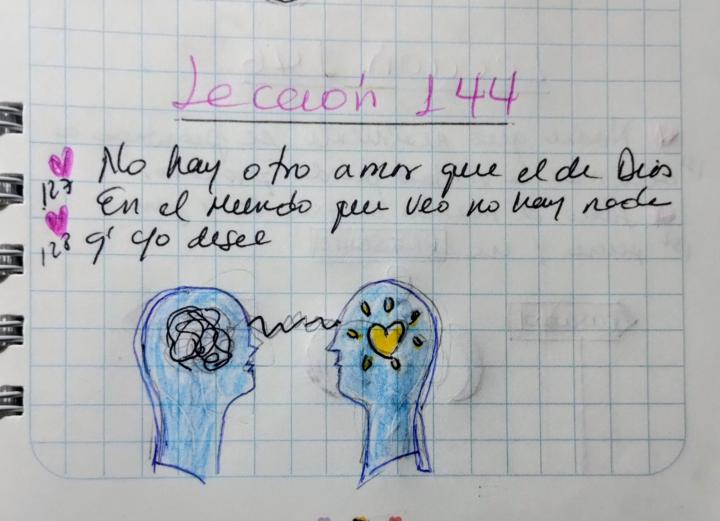 Lección 144
127 No hay otro amor que el de Dios
128 En el mundo que veo no hay nada
q' yo desee